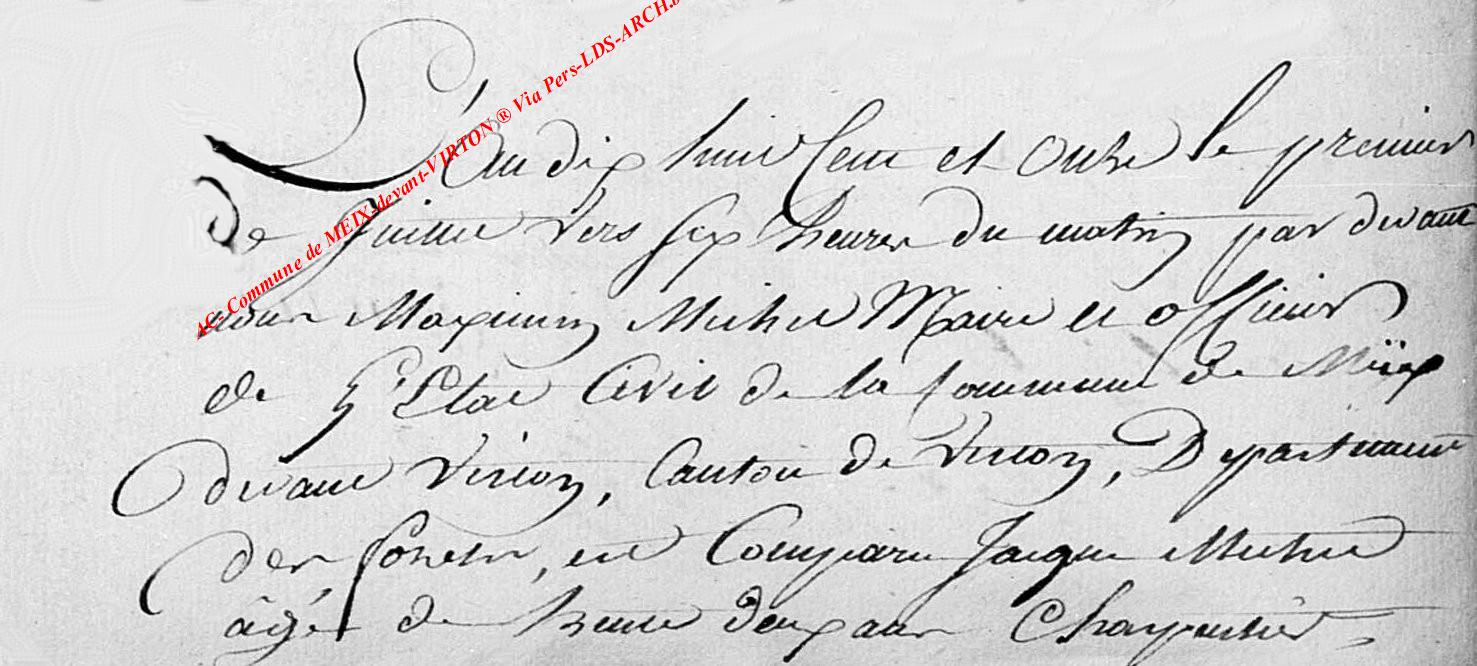 AC- Commune de MEIX-devant-VIRTON ® Via Pers-LDS-ARCH.b
L'an dix huit Cent et Onze le premier
de Juin vers six heures du matin par devant
nous Maximin Michel Maire et officier
de L'Etat Civil de la Commune de Meïx
devant Virton, Canton de Virton, Departement
des forets, est Comparu Jacque Michel
âgé de trente deux ans Charpentier